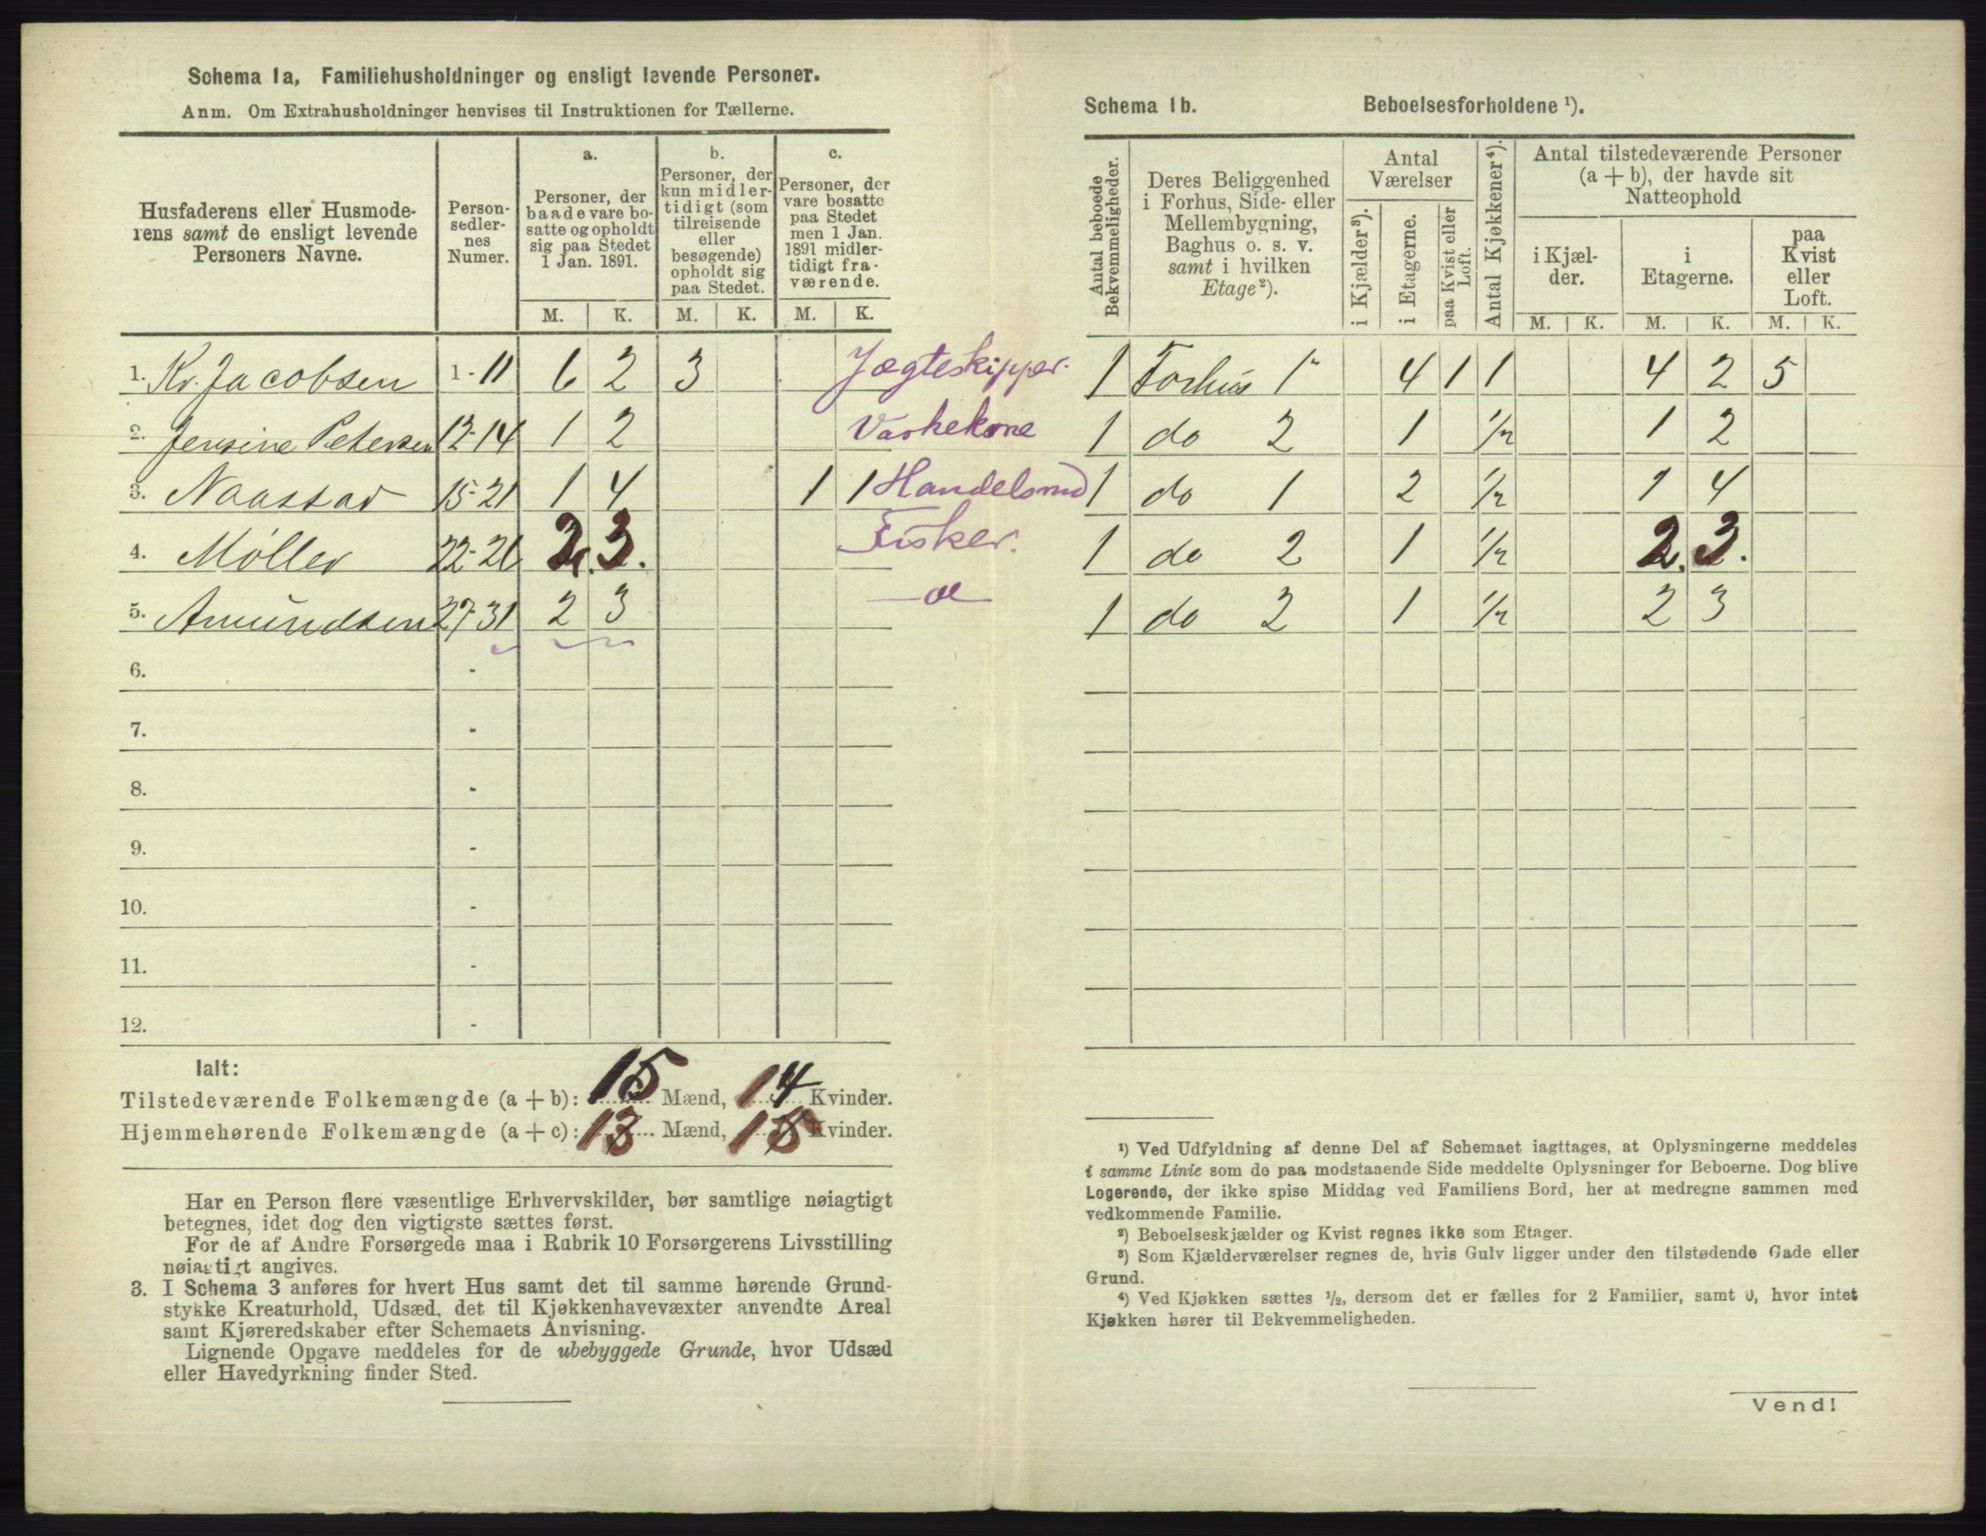 Schema 1a, Familiehusholdninger og ensligt levende Personer.
Anm. Om Extrahusholdninger henvises til Instruktionen for Tællerne.
Husfaderens eller Husmode-
rens samt de ensligt levende
Personers Navne.
Person-
sedler-
nes
Numer.
a.
Personer, der
baade vare bo-
satte og opholdt
sig paa Stedet
1 Jan. 1891.
b.
Personer, der
kun midler-
tidigt (som
tilreisende
eller
besøgende)
opholdt sig
paa Stedet.
c.
Personer, der
vare bosatte
paa Stedet
men 1 Jan.
1891 midler-
tidigt fra-
værende.
M. K. M. K. M. K.
1. Kr. Jacobsen 1-11 6 2 3 Jægteskipper.
2. Jensine Petersen 12-14 1 2 Vaskekone
3. Naastad 15-21 1 4 1 1 Handelsmd
4. Møller 22-26 2. 3. Fisker.
5. Amundsen 27-31 2 3
6. -
7. -
8. -
9. -
10. -
11. -
12. -
Ialt:
Tilstedeværende Folkemængde (a + b): 15 Mænd, 14 Kvinder.
Hjemmehørende Folkemængde (a + c): 13 Mænd, 15 Kvinder.
Har en Person flere væsentlige Erhvervskilder, bør samtlige nøiagtigt
betegnes, idet dog den vigtigste sættes først.
For de af Andre Forsørgede maa i Rubrik 10 Forsørgerens Livsstilling
nøiagtigt angives.
3. I Schema 3 anføres for hvert Hus samt det til samme hørende Grund-
stykke Kreaturhold, Udsæd, det til Kjøkkenhavevæxter anvendte Areal
samt Kjøreredskaber efter Schemaets Anvisning.
Lignende Opgave meddeles for de ubebyggede Grunde, hvor Udsæd
eller Havedyrkning finder Sted.
Schema 1b. Beboelsesforholdene ¹).
Antal beboede
Bekvemmeligheder.
Deres Beliggenhed
i Forhus, Side- eller
Mellembygning,
Baghus o. s. v.
samt i hvilken
Etage²).
Antal
Værelser
i Kjælder³).
i Etagerne.
paa Kvist eller
Loft.
Antal Kjøkkener⁴).
Antal tilstedeværende Personer
(a + b), der havde sit
Natteophold
i Kjæl-
der.
i
Etagerne.
paa
Kvist
eller
Loft.
M. K. M. K. M. K.
1 Forhus 1 4 1 1 4 2 5
1 do 2 1 ½ 1 2
1 do 1 2 ½ 1 4
1 do 2 1 ½ 2. 3.
1 do 2 1 ½ 2 3
¹) Ved Udfyldning af denne Del af Schemaet iagttages, at Oplysningerne meddeles
i samme Linie som de paa modstaaende Side meddelte Oplysninger for Beboerne. Dog blive
Logerende, der ikke spise Middag ved Familiens Bord, her at medregne sammen med
vedkommende Familie.
²) Beboelseskjælder og Kvist regnes ikke som Etager.
³) Som Kjælderværelser regnes de, hvis Gulv ligger under den tilstødende Gade eller
Grund.
⁴) Ved Kjøkken sættes ½, dersom det er fælles for 2 Familier, samt 0, hvor intet
Kjøkken hører til Bekvemmeligheden.
Vend!